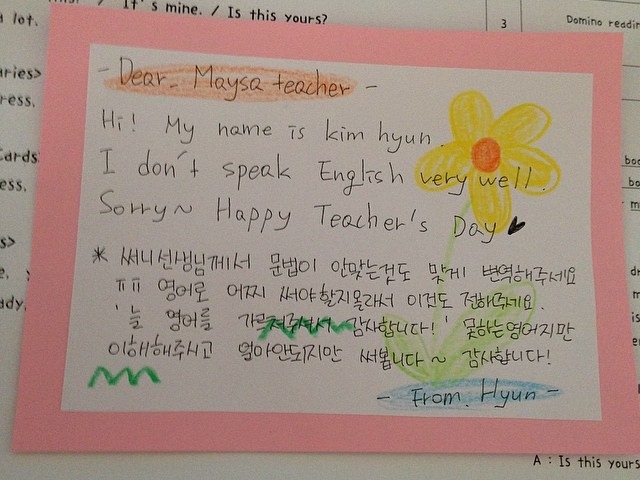 It's mine. / Is this yours?
lot.
3
Domino readin
ries>
ress.
ards
ess.
s>
ady.
- Dear. Maysa teacher -
Hi! My name is kim hyun.
I don't speak English very well.
Sorry~ Happy Teacher's Day ♥
* 써니선생님께서 문법이 안맞는것도 맞게 번역해주세요
ㅠㅠ 영어로 어찌 써야할지몰라서 이것도 전해주세요.
'늘 영어를 가르쳐주셔서 감사합니다!' 못하는영어지만
이해해주시고 얼마안되지만 써봅니다~ 감사합니다!
- From. Hyun -
A : Is this yours